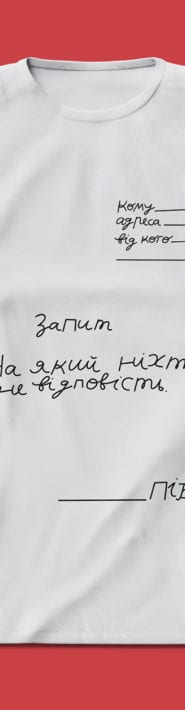 Кому
адреса
від кого
Запит
На який ніхт
не відповість.